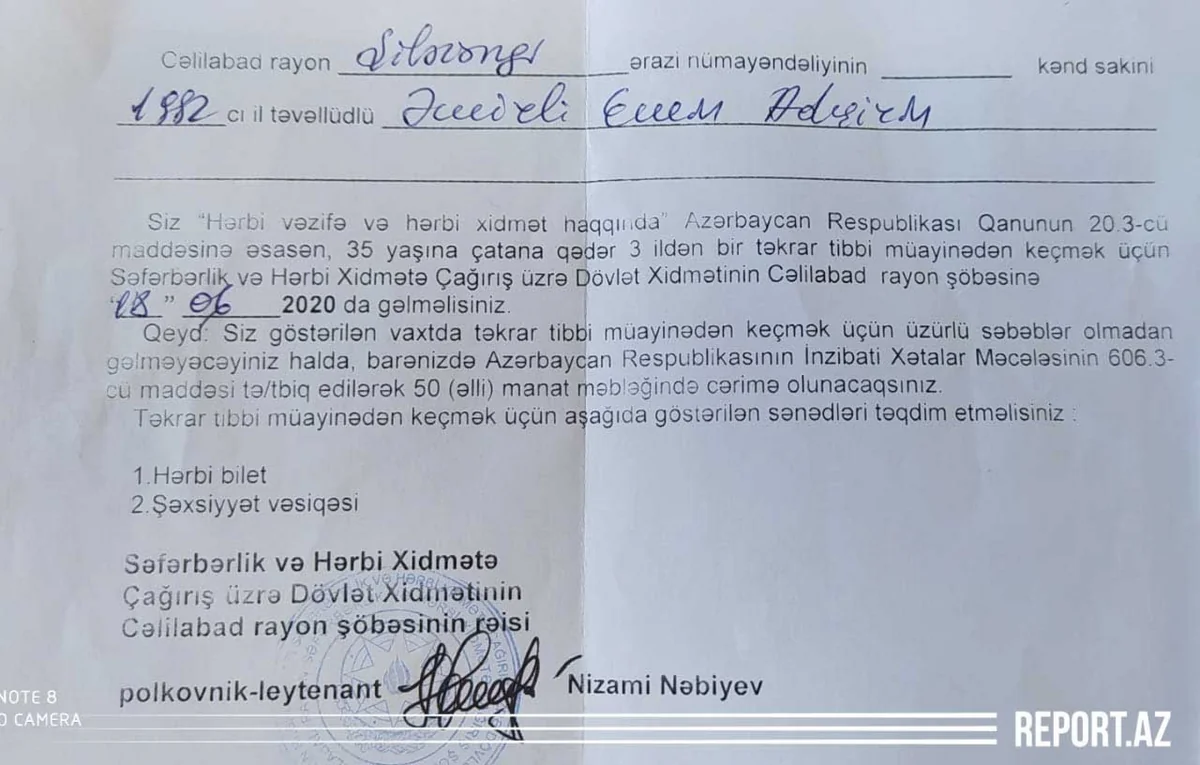 Cəlilabad rayon ərazi nümayəndəliyinin kənd sakini
1992 ci il təvəllüdlü
Siz “Hərbi vəzifə və hərbi xidmət haqqında” Azərbaycan Respublikası Qanunun 20.3-cü
maddəsinə əsasən, 35 yaşına çatana qədər 3 ildən bir təkrar tibbi müayinədən keçmək üçün
Səfərbərlik və Hərbi Xidmətə Çağırış üzrə Dövlət Xidmətinin Cəlilabad rayon şöbəsinə
“18” 06 2020 da gəlməlisiniz.
Qeyd: Siz göstərilən vaxtda təkrar tibbi müayinədən keçmək üçün üzürlü səbəblər olmadan
gəlməyəcəyiniz halda, barənizdə Azərbaycan Respublikasının İnzibati Xətalar Məcələsinin 606.3-
cü maddəsi tə/tbiq edilərək 50 (əlli) manat məbləğində cərimə olunacaqsınız.
Təkrar tibbi müayinədən keçmək üçün aşağıda göstərilən sənədləri təqdim etməlisiniz :
1.Hərbi bilet
2.Şəxsiyyət vəsiqəsi
Səfərbərlik və Hərbi Xidmətə
Çağırış üzrə Dövlət Xidmətinin
Cəlilabad rayon şöbəsinin rəisi
polkovnik-leytenant Nizami Nəbiyev
NOTE 8
CAMERA
REPORT.AZ